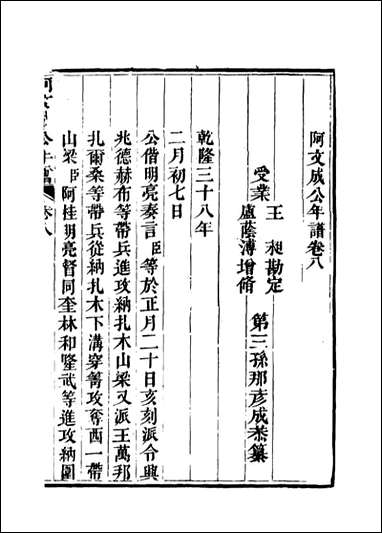 阿文成公年譜卷八
受業
王昶勘定
盧蔭溥增修
第三孫那彥成恭纂
乾隆三十八年
二月初七日
公偕明亮奏言臣等於正月二十日亥刻派令興
兆德赫布等帶兵進攻納扎木山梁又派王萬邦
扎爾桑等帶兵從納扎木下溝穿箐攻奪西一帶
山梁臣阿桂明亮督同奎林和隆武等進攻納圍
阿文成公年譜 卷八